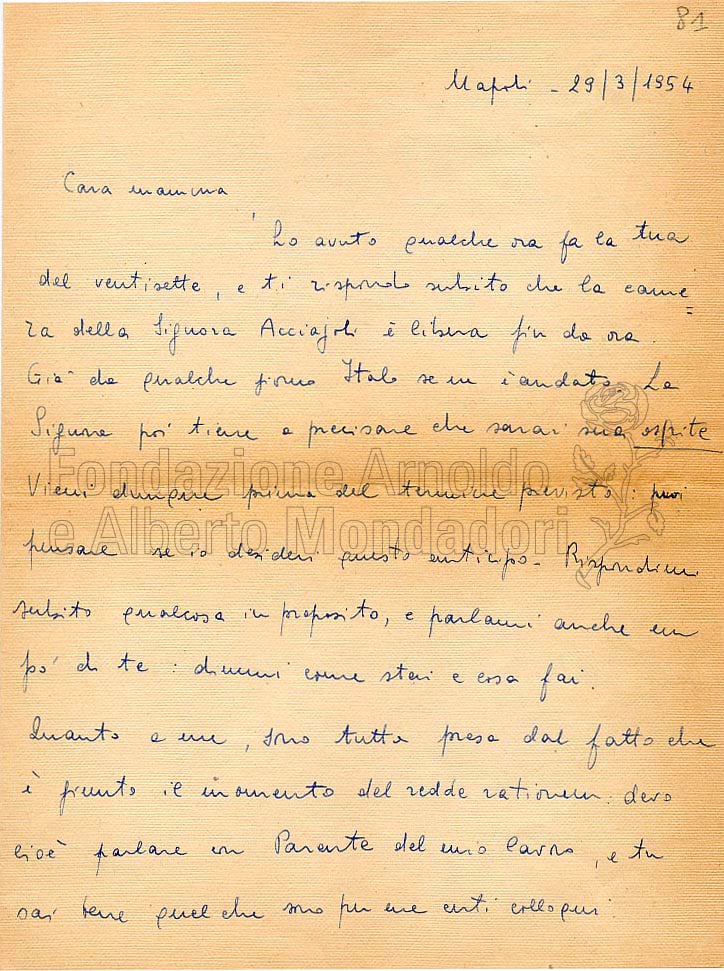 81
Napoli - 29/3/1954
Cara mamma
ho avuto qualche ora fa la tua
del ventisette, e ti rispondo subito che la came=
ra della Signora Acciajoli è libera fin da ora.
Già da qualche giorno Italo se n'è andato. La
Signora poi tiene a precisare che sarai sua ospite
Fondazione Arnoldo
e Alberto Mondadori
Vieni dunque prima del termine previsto: puoi
pensare se io desideri questo anticipo - Rispondimi
subito qualcosa in proposito, e parlami anche un
pò di te: dimmi come stai e cosa fai.
Quanto a me, sono tutta presa dal fatto che
è giunto il momento del redde rationem: devo
cioè parlare con Parente del mio lavoro, e tu
sai bene quel che sono per me certi colloqui.